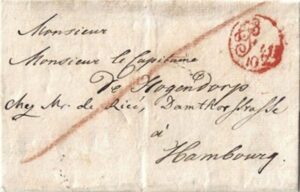 Monsieur
Monsieur le Capitaine
de Hogendorp
chez Mr. de Zicé, Damthor strasse
à
Hambourg.